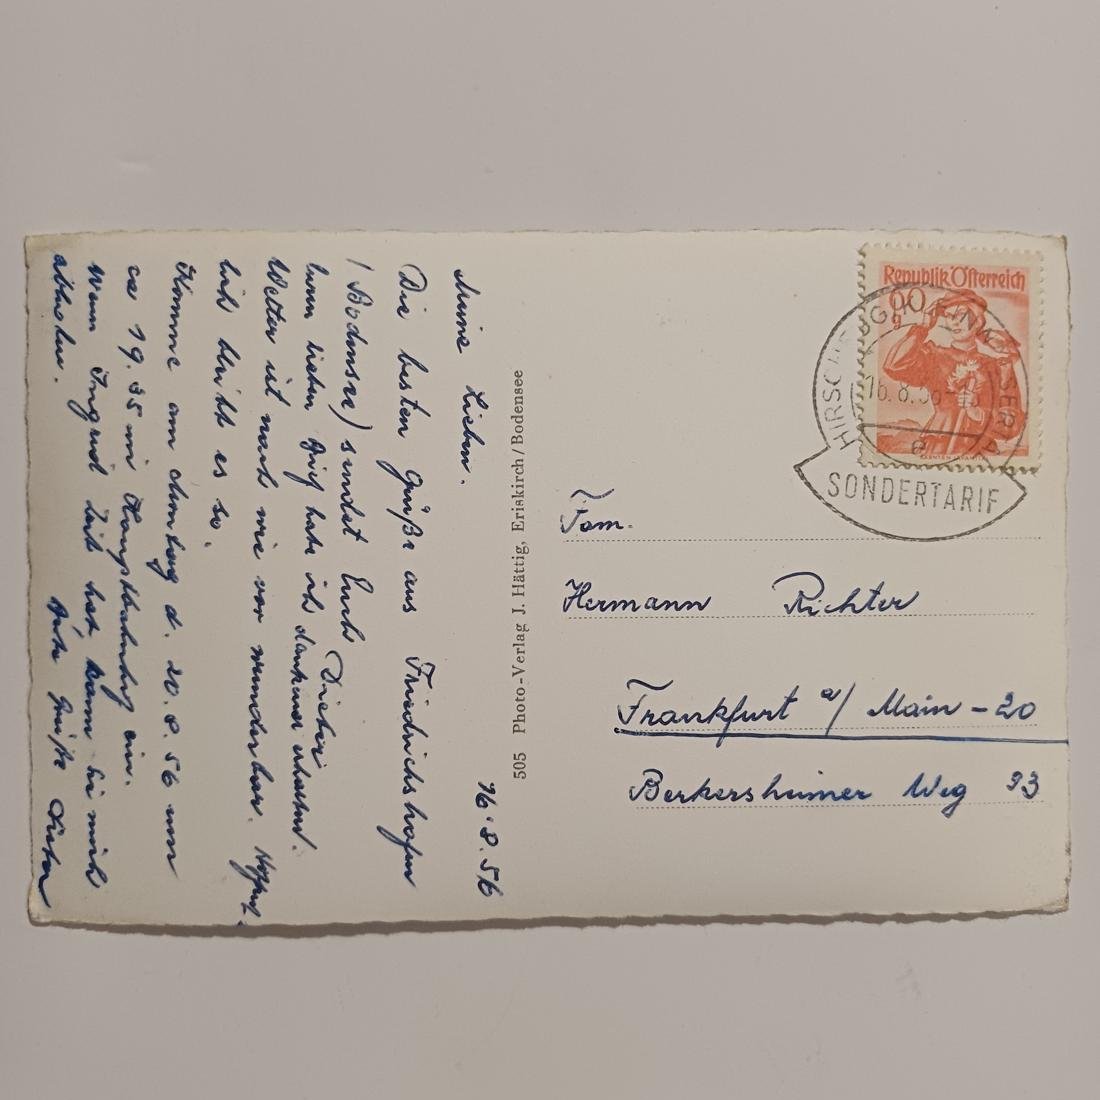 16.8.56
Meine Lieben.
Die besten Grüße aus Friedrichshafen
(Bodensee) sendet Euch Dieter.
Euren lieben Brief habe ich dankend erhalten.
Wetter ist nach wie vor wunderbar. Hoffent-
lich bleibt es so.
Komme am Montag d. 20.8.56 um
ca 19.35 im Hauptbahnhof ein.
Wenn Ingrid Zeit hat kann sie mich
abholen.
Gruß Dieter
505 Photo-Verlag J. Hättig, Eriskirch/Bodensee
Republik Österreich
60 g
HIRSCHEGG
16.8.56
e
SONDERTARIF
Fam.
Hermann Richter
Frankfurt a/ Main - 20
Berkersheimer Weg 93